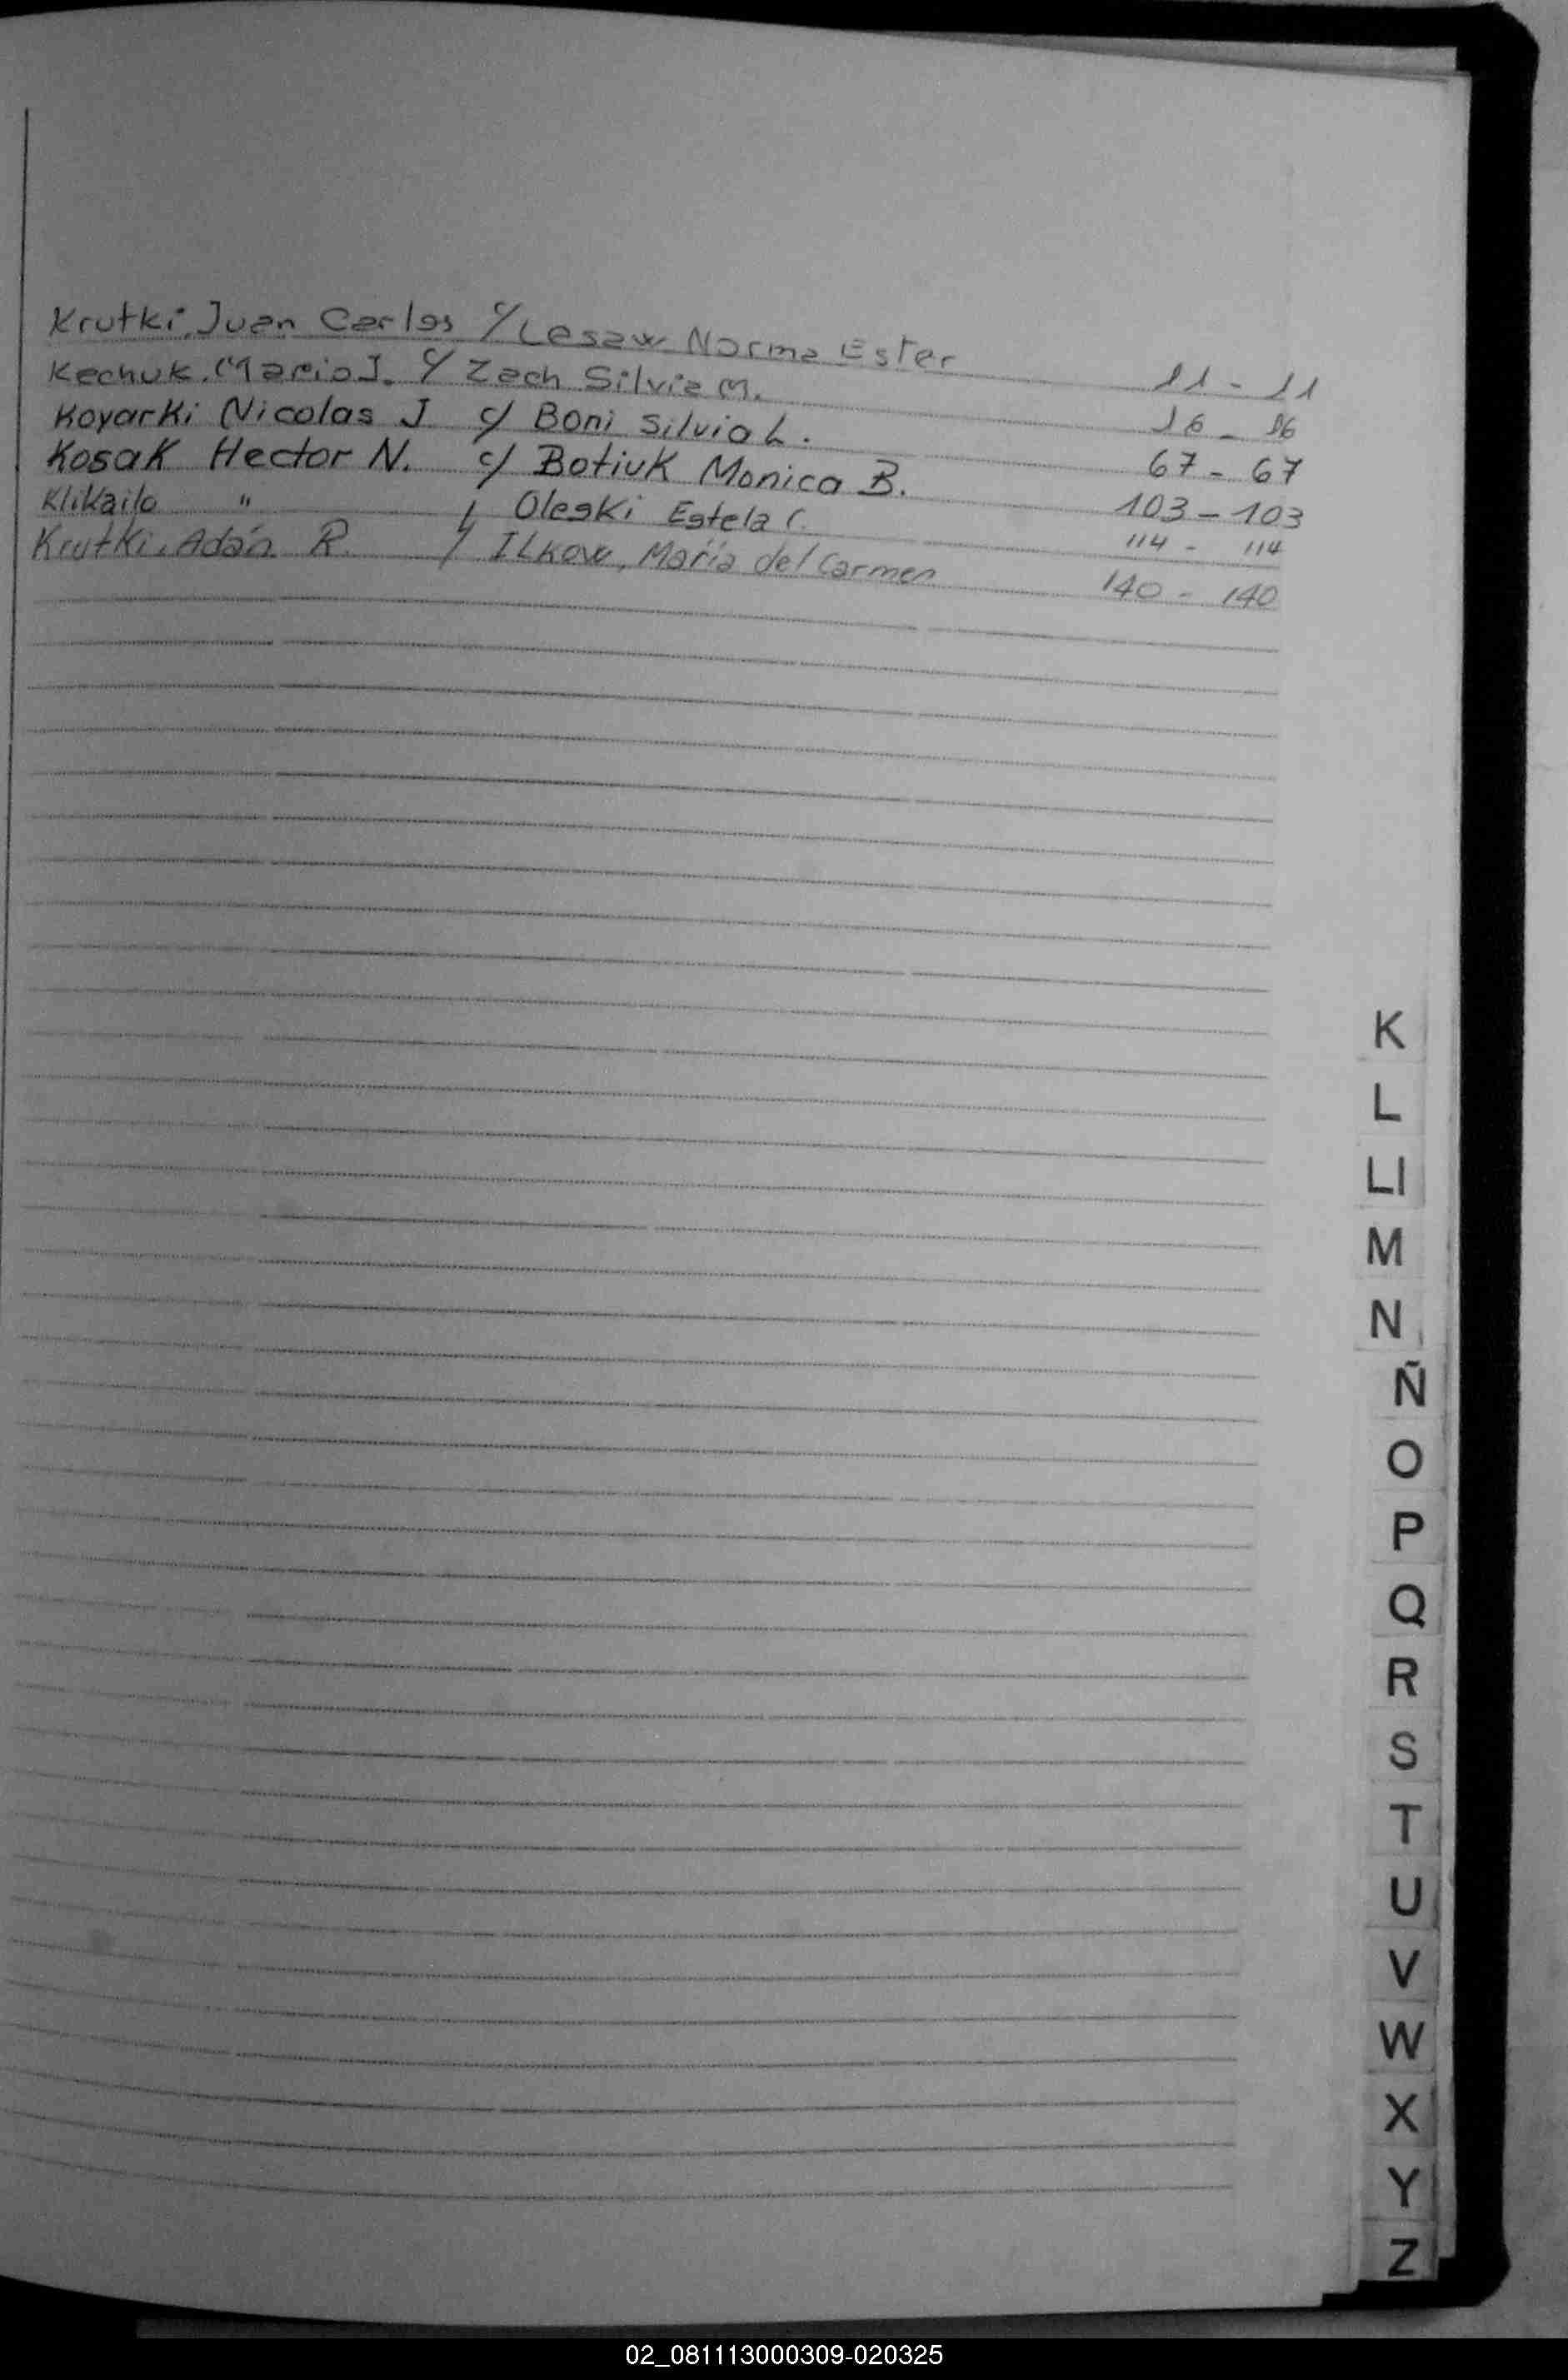 Krutki, Juan Carlos c/ Lesaw Norma Ester 11 - 11
Kechuk, Mario J. c/ Zach Silvia M. 16 - 16
Koyarki Nicolas J. c/ Boni Silvia L. 67 - 67
Kosak Hector N. c/ Botiuk Monica B. 103 - 103
Klikailo " c/ Oleski Estela C. 114 - 114
Krutki, Adán R. c/ ILkow, María del Carmen 140 - 140
K
L
Ll
M
N
Ñ
O
P
Q
R
S
T
U
V
W
X
Y
Z
02_081113000309-020325